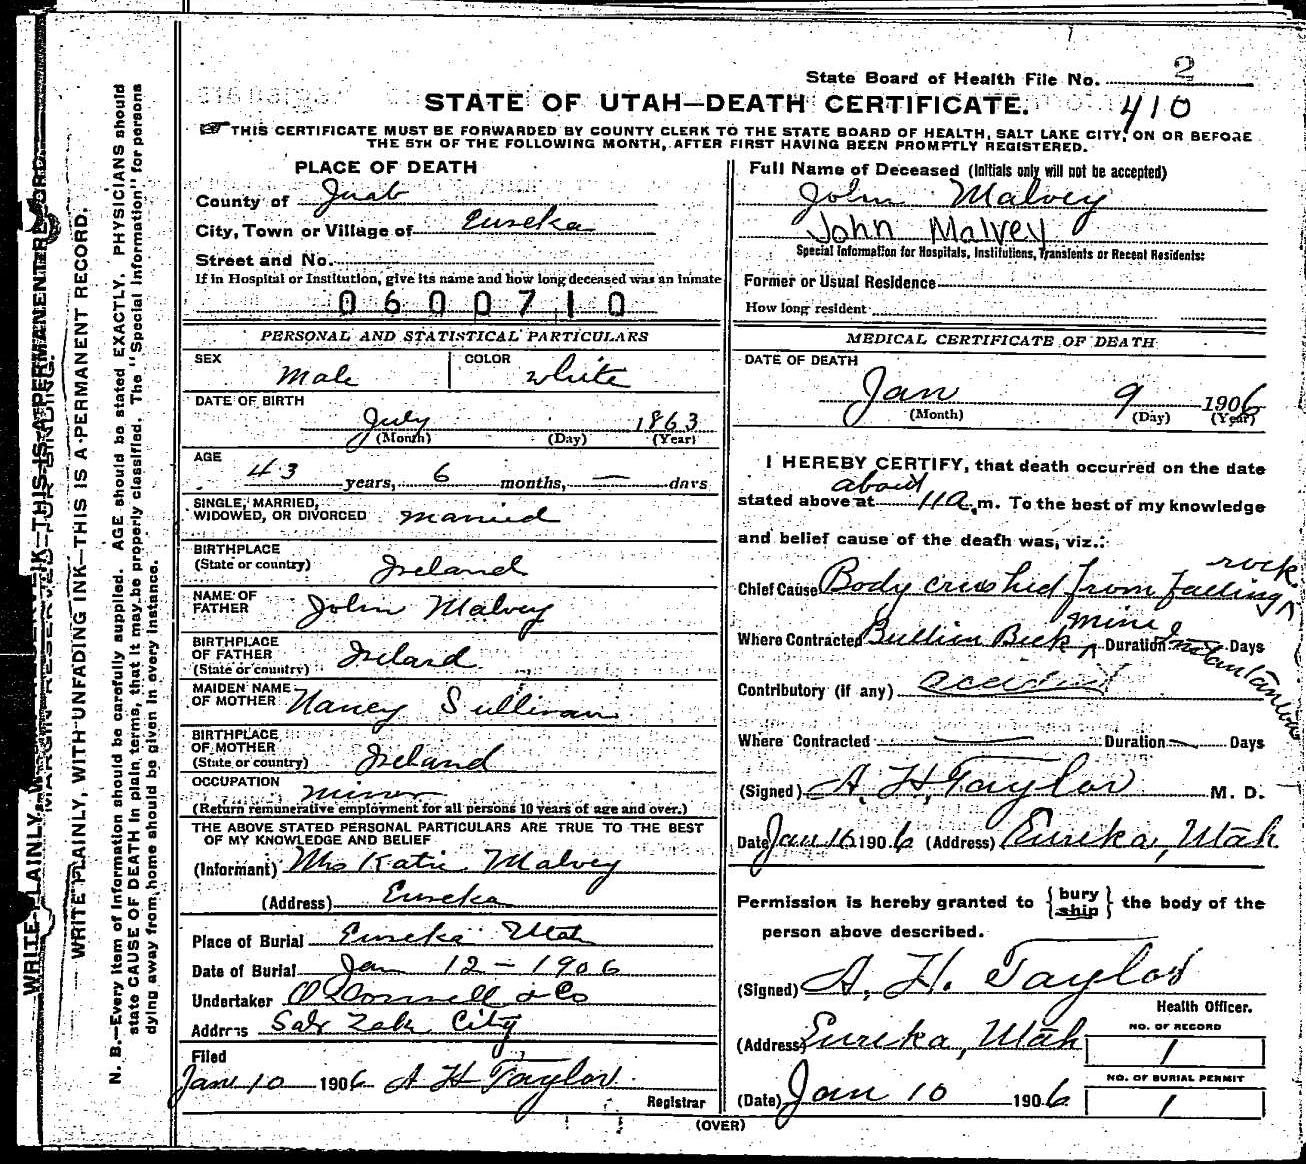 State Board of Health File No. 2
STATE OF UTAH—DEATH CERTIFICATE. 410
THIS CERTIFICATE MUST BE FORWARDED BY COUNTY CLERK TO THE STATE BOARD OF HEALTH, SALT LAKE CITY, ON OR BEFORE
THE 5TH OF THE FOLLOWING MONTH, AFTER FIRST HAVING BEEN PROMPTLY REGISTERED.
PLACE OF DEATH
County of Juab
City, Town or Village of Eureka
Street and No.
If in Hospital or Institution, give its name and how long deceased was an inmate
0600710
PERSONAL AND STATISTICAL PARTICULARS
SEX Male COLOR white
DATE OF BIRTH
July 1863
(Month) (Day) (Year)
AGE
43 years, 6 months, — days
SINGLE, MARRIED,
WIDOWED, OR DIVORCED married
BIRTHPLACE
(State or country) Ireland
NAME OF
FATHER John Malvey
BIRTHPLACE
OF FATHER
(State or country) Ireland
MAIDEN NAME
OF MOTHER Nancy Sullivan
BIRTHPLACE
OF MOTHER
(State or country) Ireland
OCCUPATION minor
(Return remunerative employment for all persons 10 years of age and over.)
THE ABOVE STATED PERSONAL PARTICULARS ARE TRUE TO THE BEST
OF MY KNOWLEDGE AND BELIEF
(Informant) Mrs Katie Malvey
(Address) Eureka
Place of Burial Eureka Utah
Date of Burial Jan 12 - 1906
Undertaker O'Donnell & Co
Address Salt Lake City
Filed
Jan 10 1906 A H Taylor
Registrar
Full Name of Deceased (Initials only will not be accepted)
John Malvey
John Malvey
Special Information for Hospitals, Institutions, Transients or Recent Residents:
Former or Usual Residence
How long resident
MEDICAL CERTIFICATE OF DEATH
DATE OF DEATH
Jan 9 1906
(Month) (Day) (Year)
I HEREBY CERTIFY, that death occurred on the date
about
stated above at 11 a.m. To the best of my knowledge
and belief cause of the death was, viz.:
rock
Chief Cause Body crushed from falling
mine
Where Contracted Bullion Beck Duration Instantaneous Days
Contributory (if any) accident
Where Contracted — Duration — Days
(Signed) A. H. Taylor M. D.
Date Jan 16 1906 (Address) Eureka, Utah
Permission is hereby granted to {bury ship} the body of the
person above described.
(Signed) A. H. Taylor
Health Officer.
(Address) Eureka, Utah
NO. OF RECORD
1
NO. OF BURIAL PERMIT
1
(Date) Jan 10 1906
(OVER)
WRITE PLAINLY, WITH UNFADING INK—THIS IS A PERMANENT RECORD.
N. B.—Every item of information should be carefully supplied. AGE should be stated EXACTLY. PHYSICIANS should
state CAUSE OF DEATH in plain terms, that it may be properly classified. The "Special Information" for persons
dying away from home should be given in every instance.